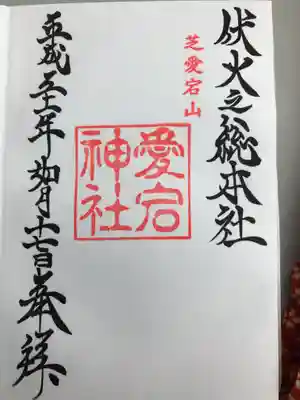 伏火之総本社
芝愛宕山
愛宕神社
平成三十一年如月十七日奉拝